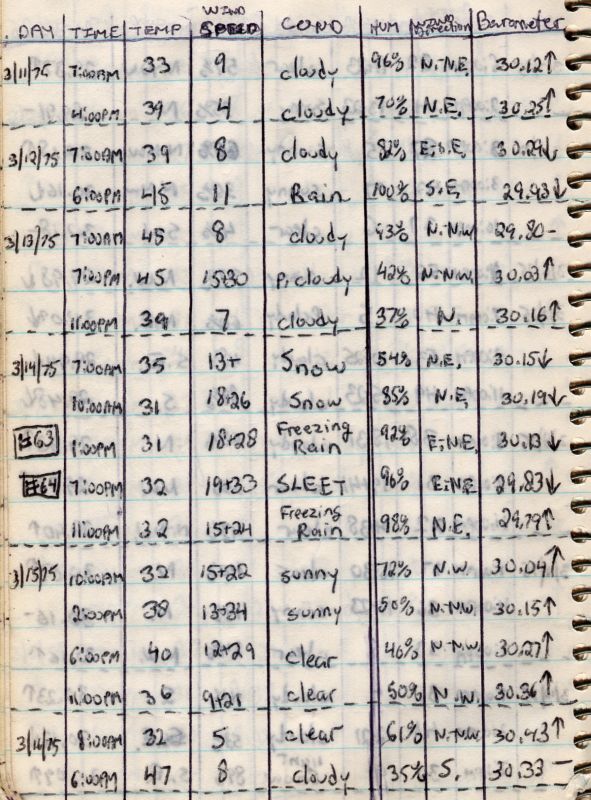 DAY TIME TEMP WIND SPEED COND HUM WIND Direction Barometer
3/11/75 7:00AM 33 9 cloudy 96% N.N.E. 30.12↑
4:00PM 39 4 cloudy 70% N.E. 30.25↑
3/12/75 7:00AM 39 8 cloudy 82% E.S.E. 30.29↓
6:00PM 45 11 Rain 100% S.E. 29.93↓
3/13/75 7:00AM 45 8 cloudy 93% N.N.W. 29.80-
7:00PM 45 15+30 P. cloudy 42% N.N.W. 30.03↑
11:00PM 39 7 cloudy 37% N. 30.16↑
3/14/75 7:00AM 35 13+ Snow 54% N.E. 30.15↓
10:00AM 31 18+26 Snow 85% N.E. 30.19↓
#63 1:00PM 31 18+28 Freezing Rain 92% E.N.E. 30.13↓
#64 7:00PM 32 19+33 SLEET 96% E.N.E. 29.83↓
11:00PM 32 15+24 Freezing Rain 98% N.E. 29.79↑
3/15/75 10:00AM 32 15+22 sunny 72% N.W. 30.04↑
2:00PM 38 13+34 sunny 50% N.NW. 30.15↑
6:00PM 40 12+29 clear 46% N.NW. 30.27↑
11:00PM 36 9+21 clear 50% N.W. 30.36↑
3/16/75 8:00AM 32 5 clear 61% N.NW. 30.43↑
6:00PM 47 8 cloudy 35% S. 30.33-